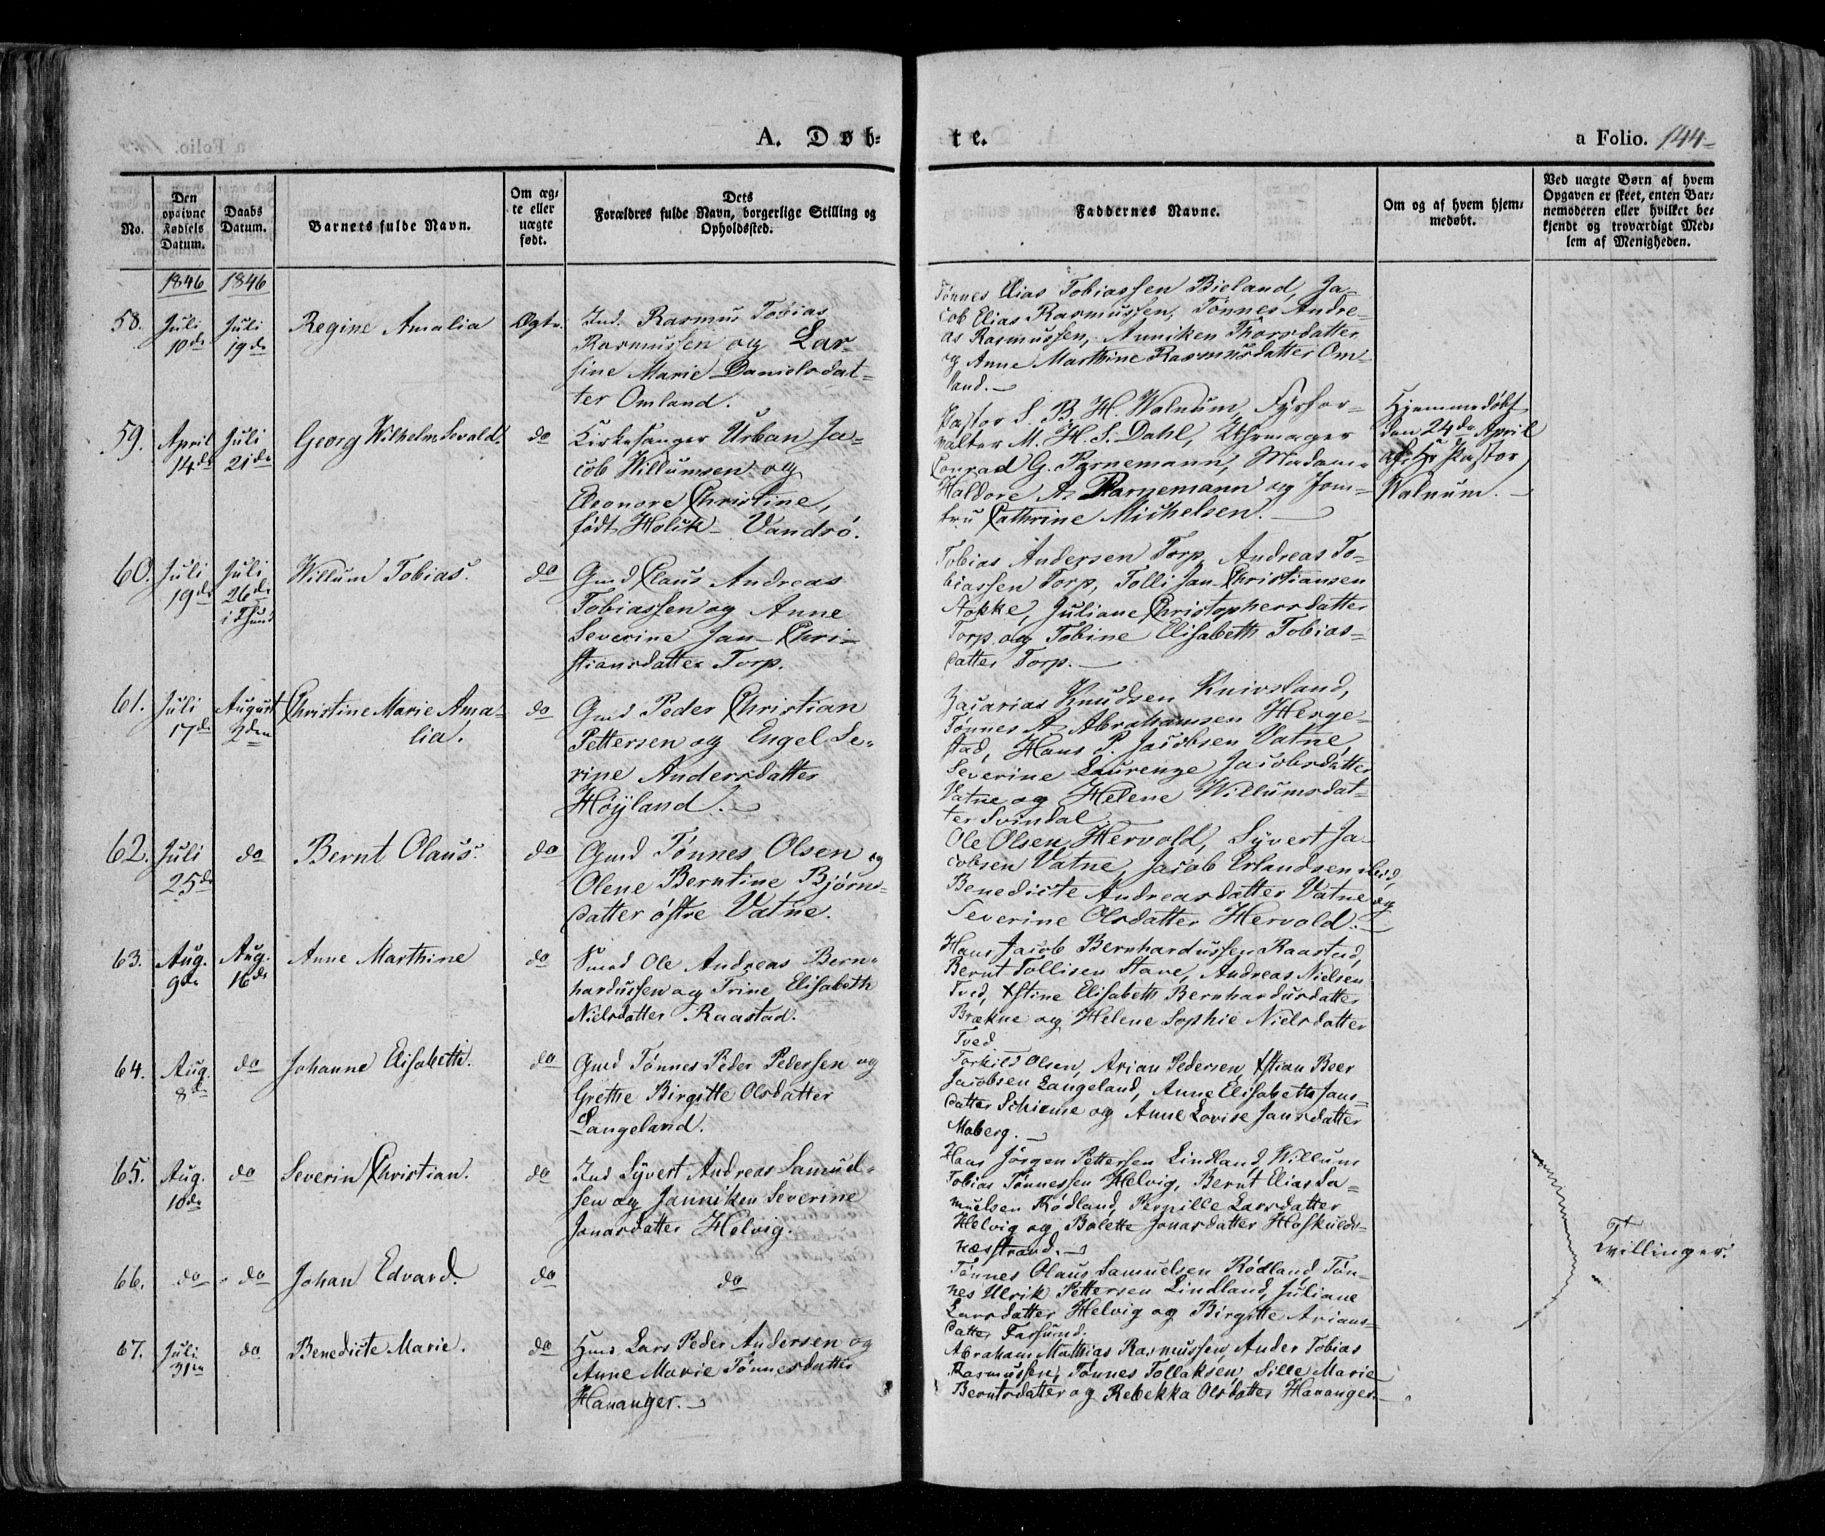 A. Døb-
te.
a Folio. 144-
No.
Den opgivne Fødsels Datum.
Daabs Datum.
Barnets fulde Navn.
Om ægte eller uægte født.
Dets Forældres fulde Navn, borgerlige Stilling og Opholdssted.
Faddernes Navne.
Om og af hvem hjemmedøbt.
Ved uægte Børn af hvem Opgaven er skeet, enten Barnemoderen eller hvilket bekjendt og troværdigt Medlem af Menigheden.
1846 1846
58. Juli 10de
Juli 19de
Regine Amalia
Ægte.
Ind. Rasmus Tobias
Rasmussen og Lar-
sine Marie Danielsdat-
ter Omland.
Tønnes Elias Tobiassen Bieland, Ja-
cob Elias Rasmussen, Tønnes Andre-
as Rasmussen, Anniken Thorsdatter
og Anne Marthine Rasmusdatter Om-
land.
59. April 14de
Juli 21de
Georg Wilhelm Sevald.
do
Kirkesanger Urban Ja-
cob Willumsen og
Eleonore Christine,
født Holck Vandsö.
Pastor S. B. H. Walnum, Fyrfor-
valter M. H. S. Dahl, Uhrmager
Conrad G. Parnemann, Madam
Haldore A. Parnemann og Jom-
fru Cathrine Michelsen.
Hjemmedøbt
den 24de April
af Hr Pastor
Walnum.
60. Juli 19de
Juli 26de i Fsund
Willum Tobias.
do
Gmd Claus Andreas
Tobiassen og Anne
Severine Jan-Chri-
stiansdatter Torp.
Tobias Andersen Torp, Andreas To-
biassen Torp, Tolli Jan Christiansen
Stokke, Juliane Christophersdatter
Torp og Tobine Elisabeth Tobias-
datter Torp.
61. Juli 17de
August 2den
Christine Marie Ama-
lia.
do
Gmd Peder Christian
Pettersen og Engel Se-
rine Andersdatter
Höyland.
Zacarias Knudsen Knivsland,
Tønnes A. Abrahamsen Herge-
stad, Hans P. Jacobsen Vatne,
Severine Laurenze Jacobsdatter
Vatne og Helene Willumsdat-
ter Svindal.
62. Juli 25de
do
Bernt Olaus.
do
Gmd Tønnes Olsen og
Olene Berntine Bjørns-
datter østre Vatne.
Ole Olsen Hervold, Syvert Ja-
cobsen Vatne, Jacob Erlandsen ibid,
Benedicte Andreasdatter Vatne og
Severine Olsdatter Hervold.
63. Aug. 9de
Aug. 16de
Anne Marthine
do
Smed Ole Andreas Bern-
hardussen og Trine Elisabeth
Nielsdatter Raastad.
Hans Jacob Bernhardussen Raastad,
Bernt Tollisen Stave, Andreas Nielsen
Tved, Xstine Elisabeth Bernhardusdatter
Brækne og Helene Sophie Nielsdatter
Tved
64. Aug. 8de
do
Johanne Elisabeth.
do
Gmd Tønnes Peder Pedersen og
Grethe Birgitte Olsdatter
Langeland.
Torkild Olsen, Arian Pedersen, Xstian Beer
Jacobsen Langeland, Anne Elisabeth Jans-
datter Schieme og Anne Lovise Jansdatter
Maberg.
65. Aug. 10de
do
Severin Christian.
do
Ind Syvert Andreas Samuel-
sen og Janniken Severine
Jonasdatter Helvig.
Hans Jørgen Pettersen Lindland, Willum
Tobias Tønnessen Helvig, Bernt Elias Sa-
muelsen Rödland, Pernille Larsdatter
Helvig og Bolette Jonasdatter Høskulds-
næsstrand.
Tvillinger.
66. do
do
Johan Edvard.
do
do
Tønnes Olaus Samuelsen Rödland, Tøn-
nes Ulrik Pettersen Lindland, Juliane
Larsdatter Helvig og Birgitte Arians-
datter Farsund.
67. Juli 31te
do
Benedicte Marie.
do
Hmd Lars Peder Andersen og
Anne Marie Tønnesdatter
Hananger.
Abraham Mathias Rasmussen, Ander Tobias
Rasmussen, Tønnes Tollaksen, Sille Marie
Berntsdatter og Rebekka Olsdatter Hananger.